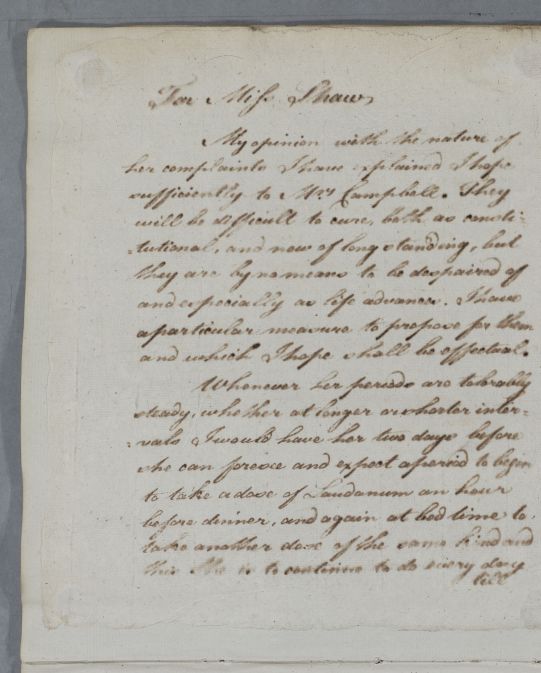 For Miss Shaw
My opinion with the nature of
her complaints I have explained I hope
sufficiently to Mrs Campbell. They
will be difficult to cure, both as consti-
tutional, and now of long standing, but
they are by no means to be despaired of
and especially as life advances. I have
a particular measure to propose for them
and which I hope shall be effectual.
Whenever her periods are tolerably
steady, whether at longer or shorter inter-
-vals I would have her two days before
she can foresee and expect a period to begin
to take a dose of Laudanum an hour
before dinner, and again at bed time to
take another dose of the same kind and
this She is to continue to do every day
till